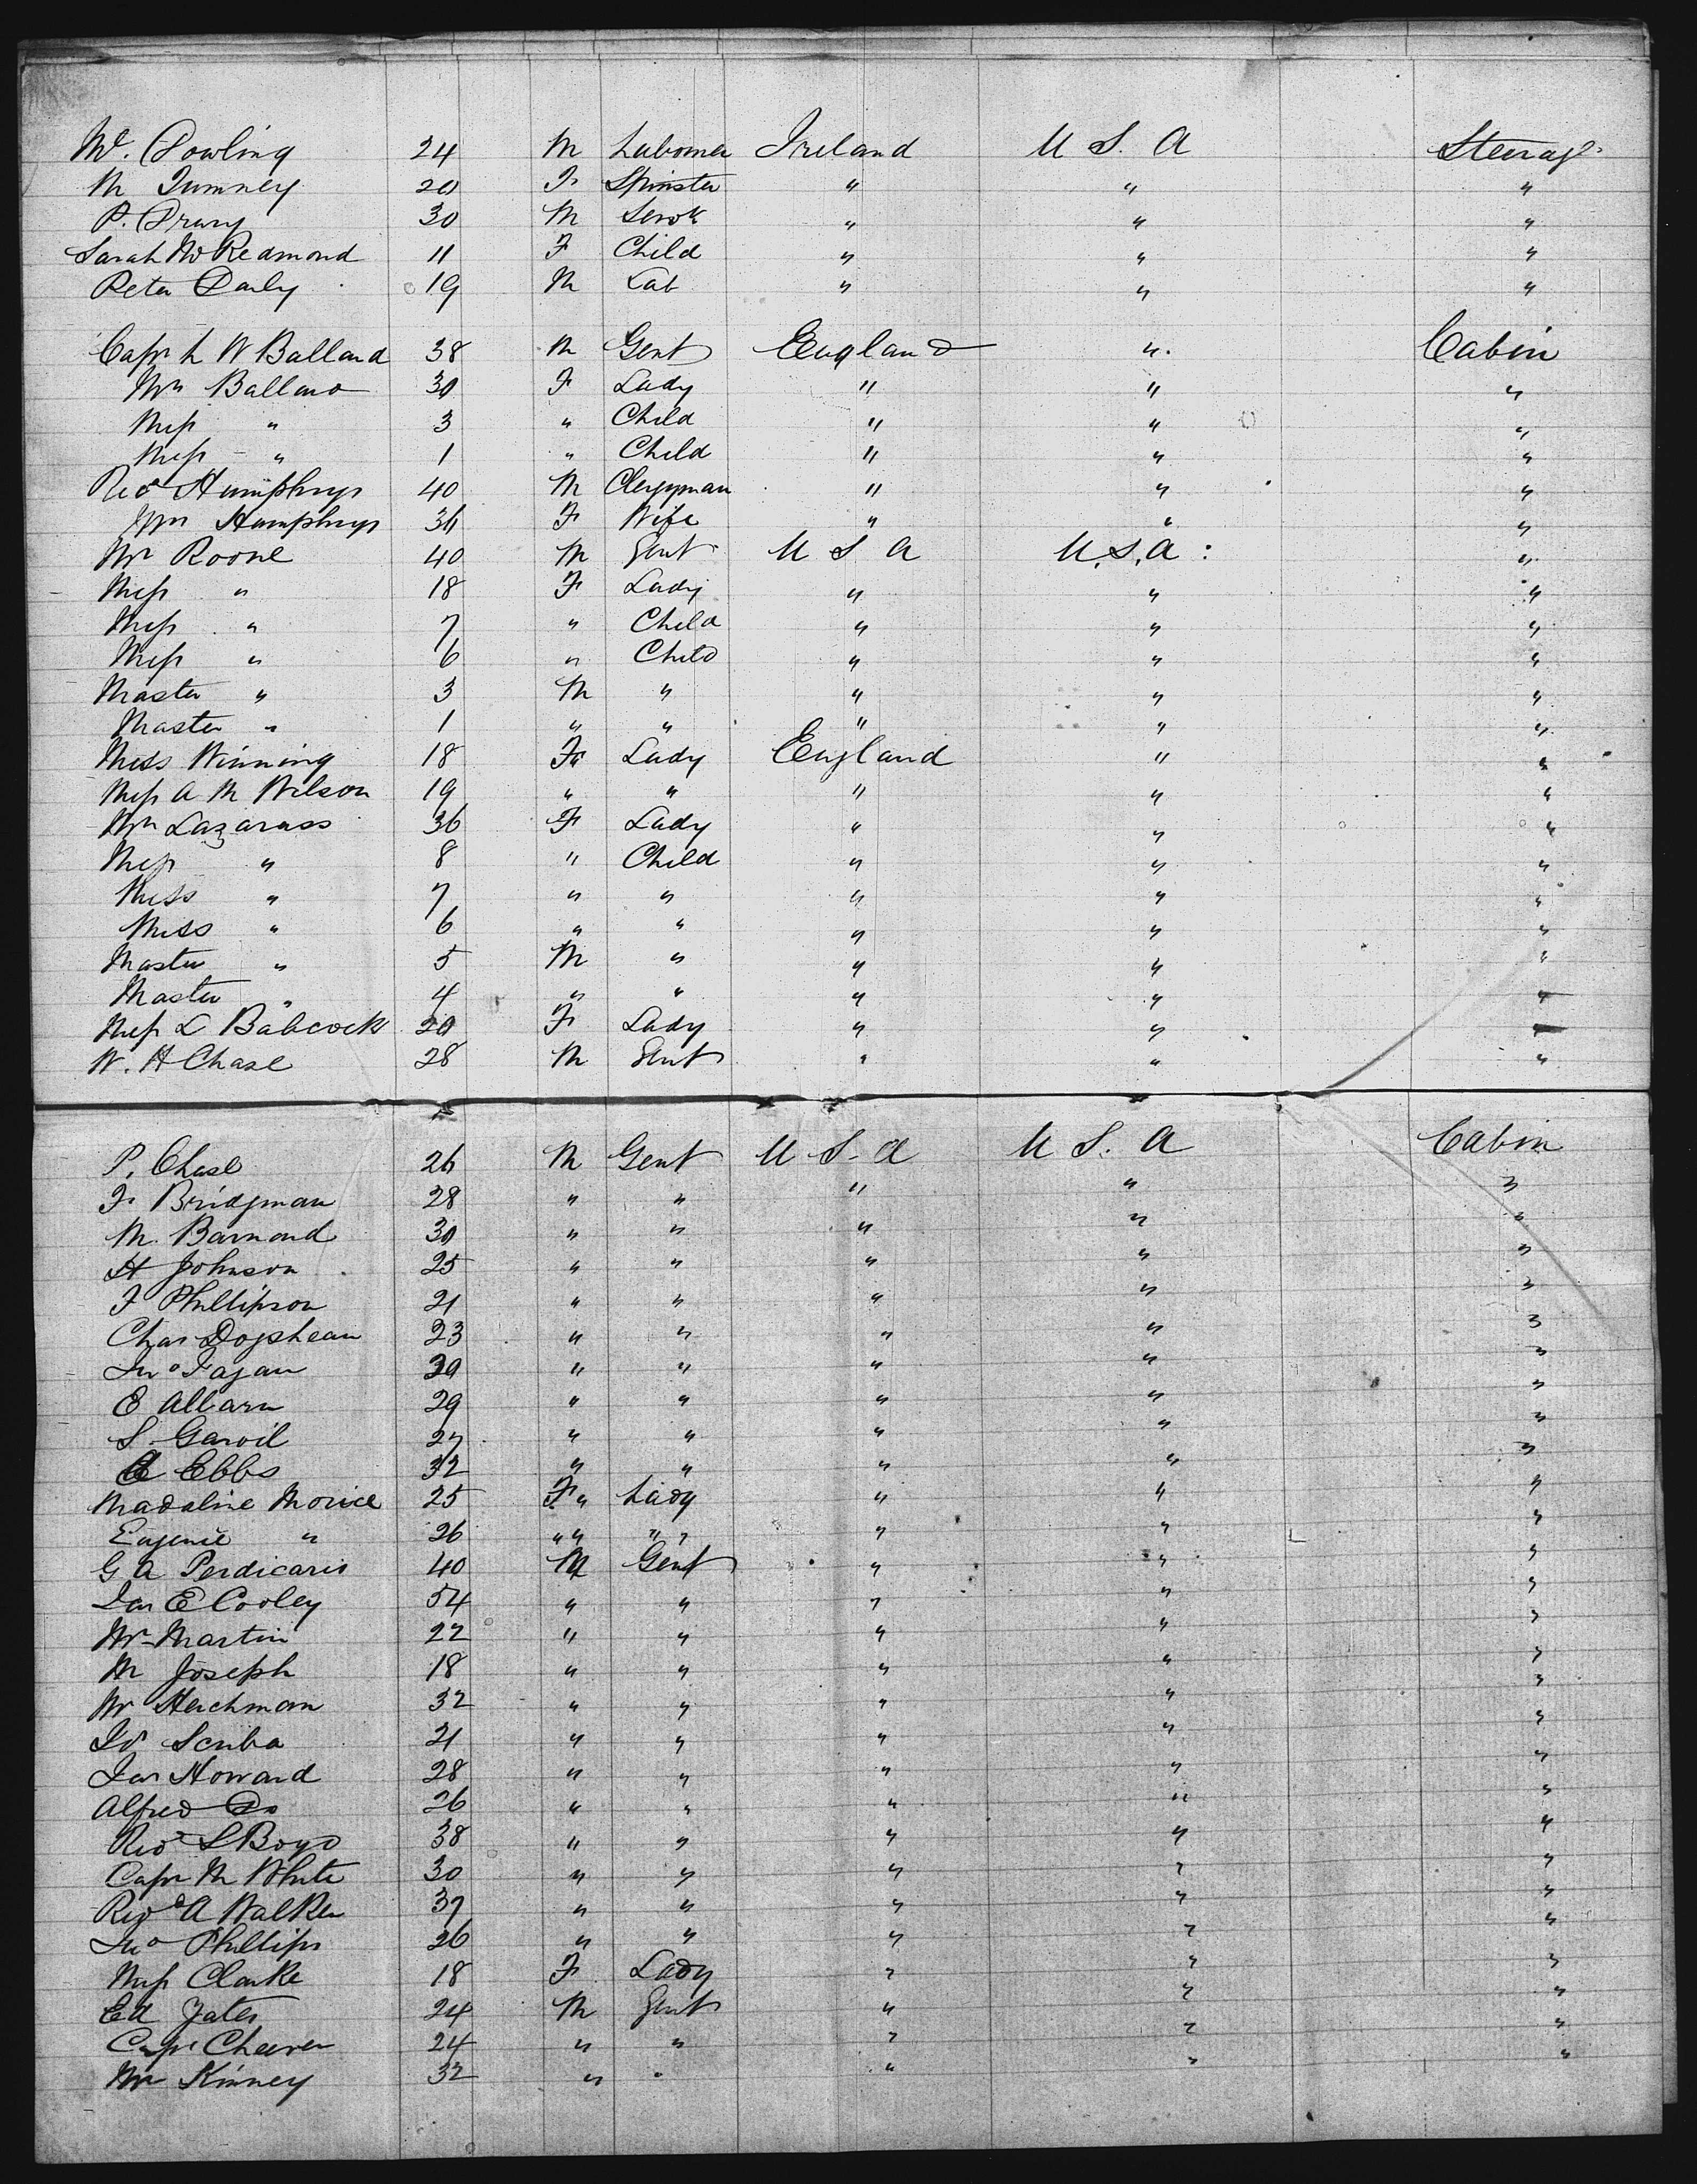 W. Dowling 24 M Labourer Ireland U S. A Steerage
M Tumney 20 F Spinster " " "
P. Drury 30 M " " "
Sarah Mc Redmond 11 F Child " " "
Peter Daily 19 M Lab " " "
Capt L W Ballard 38 M Gent England " Cabin
Mrs Ballard 30 F Lady " " "
Miss " 3 " Child " " "
Miss " 1 " Child " " "
Revd Humphrys 40 M Clergyman " " "
Mrs Humphrys 36 F Wife " " "
Mr Roone 40 M Gent U S A U.S.A: "
Miss " 18 F Lady " " "
Miss " 7 " Child " " "
Miss " 6 " Child " " "
Master " 3 M " " " "
Master " 1 " " " " "
Miss Winning 18 F Lady England " "
Miss A M Wilson 19 " " " " "
Mrs Lazarass 36 F Lady " " "
Miss " 8 " Child " " "
Miss " 7 " " " " "
Miss " 6 " " " " "
Master " 5 M " " " "
Master " 4 " " " " "
Miss L Babcock 20 F Lady " " "
W. H Chase 28 M Gent " " "
P. Chase 26 M Gent U S. A U S. A Cabin
F Bridgman 28 " " " " "
M. Barnond 30 " " " " "
H Johnson 25 " " " " "
F Phillipson 21 " " " " "
Chas Dogshean 23 " " " " "
Jno Fagan 30 " " " " "
E Allarn 29 " " " " "
S. Garvil 27 " " " " "
Ebbs 32 " " " " "
Madaline Morice 25 F " Lady " " "
Eugenie " 26 " " " " " "
G A Perdicaris 40 M Gent " " "
Jas E Cooley 54 " " " " "
Mr Martin 22 " " " " "
M Joseph 18 " " " " "
Mr Heichman 32 " " " " "
Scriba 21 " " " " "
Jas Howard 28 " " " " "
Alfred Do 26 " " " " "
Revd S Boyd 38 " " " " "
Capt M White 30 " " " " "
Revd A Walker 37 " " " " "
Jno Phillips 26 " " " " "
Miss Clarke 18 F Lady " " "
Ed Yates 24 M Gent " " "
Capt Cheever 24 " " " " "
Mr Kinney 32 " " " " "